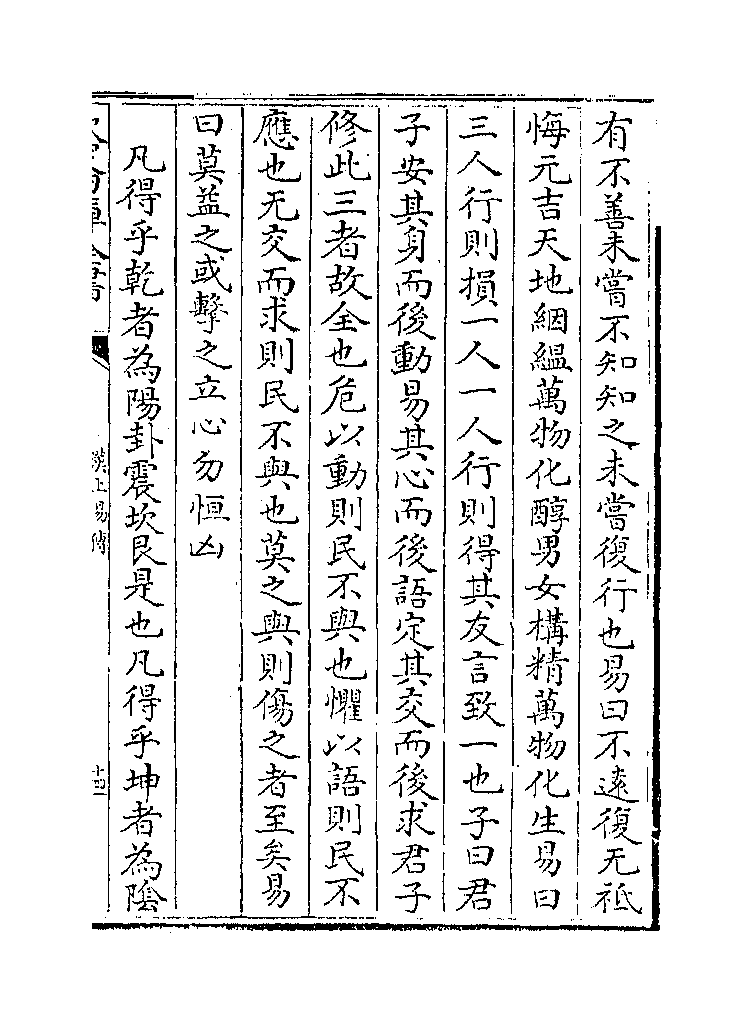 有不善未嘗不知知之未嘗復行也易曰不遠復无祗
悔元吉天地絪緼萬物化醇男女構精萬物化生易曰
三人行則損一人一人行則得其友言致一也子曰君
子安其身而後動易其心而後語定其交而後求君子
修此三者故全也危以動則民不與也懼以語則民不
應也无交而求則民不與也莫之與則傷之者至矣易
曰莫益之或擊之立心勿恒凶
凡得乎乾者為陽卦震坎艮是也凡得乎坤者為隂
漢上易傳
十四